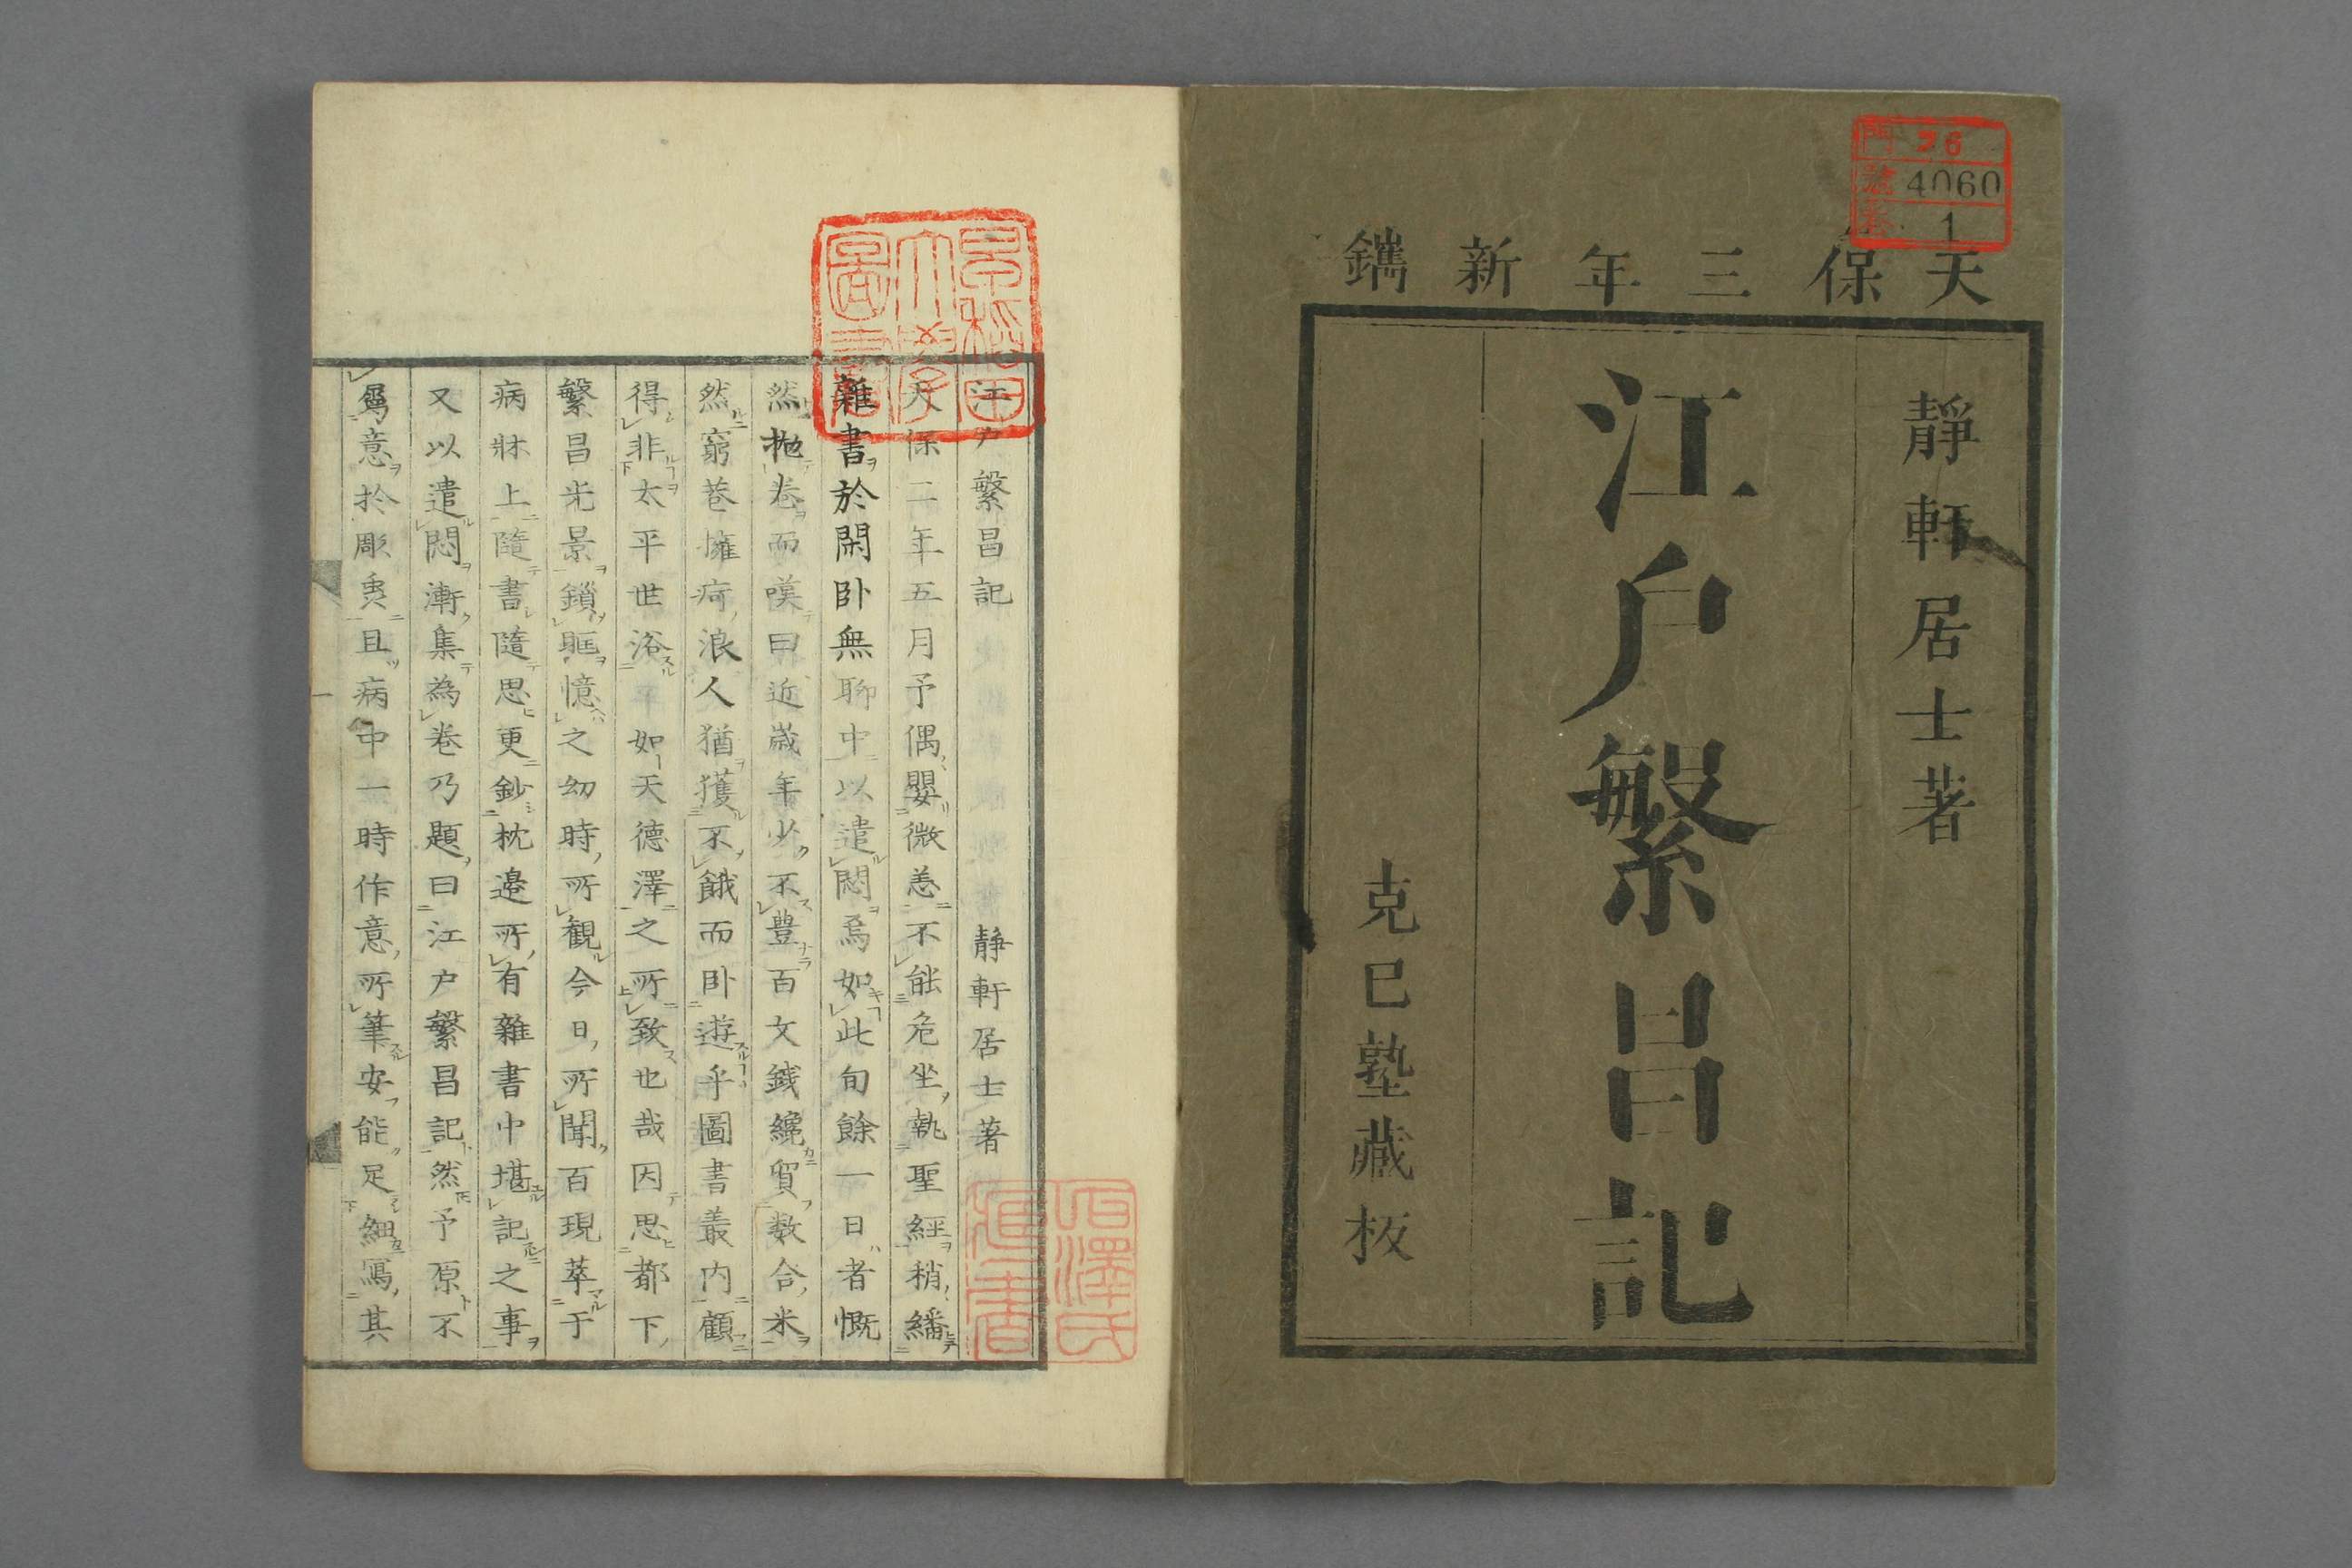 門 26
號 4060
卷 1
天保三年新鐫
靜軒居士著
江戶繁昌記
克巳塾藏板
早稻田大學圖書
江戶繁昌記 靜軒居士著
天保二年五月予偶嬰微恙不能危坐執聖經稍繙
雜書於閑卧無聊中以遣悶焉如此旬餘一日者慨
然抛卷而嘆曰近歲年少不豊百文錢纔貿数合米
然窮巷擁疴浪人猶獲不餓而卧遊乎圖書叢内顧
得非太平世浴如天德澤之所致也哉因思都下
繁昌光景鎖眶憶之幼時所観今日所聞百現萃于
病牀上隨書隨思更鈔枕邉所有雜書中堪記之事
又以遣悶漸集為卷乃題曰江户繁昌記然予原不
屬意於彫蟲且病中一時作意所筆安能足細寫其